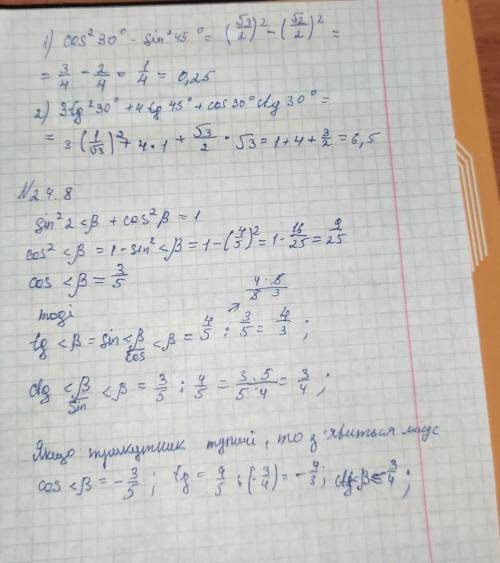 1) cos²30° - sin²45° = (√3/2)² - (√2/2)² =
= 3/4 - 2/4 = 1/4 = 0,25
2) 3tg²30° + 4tg45° + cos30° ctg30° =
= 3·(1/√3)² + 4·1 + √3/2 · √3 = 1+4+3/2 = 6,5
N24.8
sin²2<β + cos²β = 1
cos²<β = 1-sin²<β = 1-(4/5)² = 1-16/25 = 9/25
cos<β = 3/5
тоді
4·5/5·3
tg<β = sin<β/cos<β = 4/5 : 3/5 = 4/3;
ctg <β/sin <β = 3/5 : 4/5 = 3·5/5·4 = 3/4;
Якщо трикутник тупий, то з'явиться мінус
cos<β = -3/5; tg = 4/5 : (-3/4) = -4/3; ctg<β = -3/4;